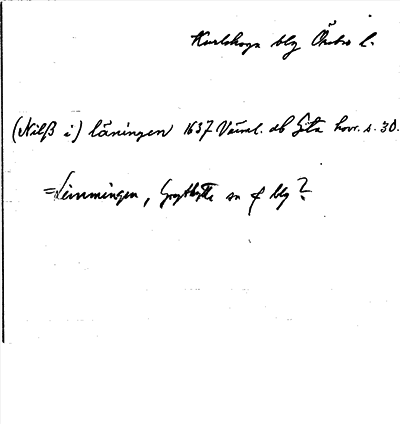 Karlskoga blg Örebro l.
(Nilß i) läningen 1637 Värml. db Göta hovr. s. 30.
=Limmingen, Grythytte sn f blg?